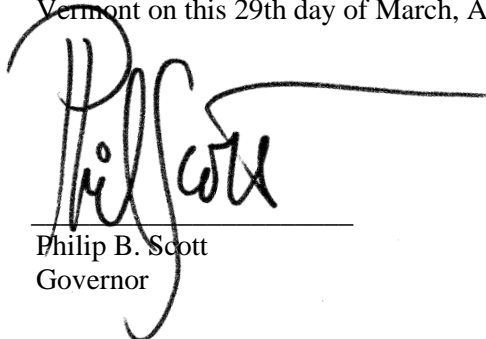 Vermont on this 29th day of March, A
Phil Scott
Philip B. Scott
Governor